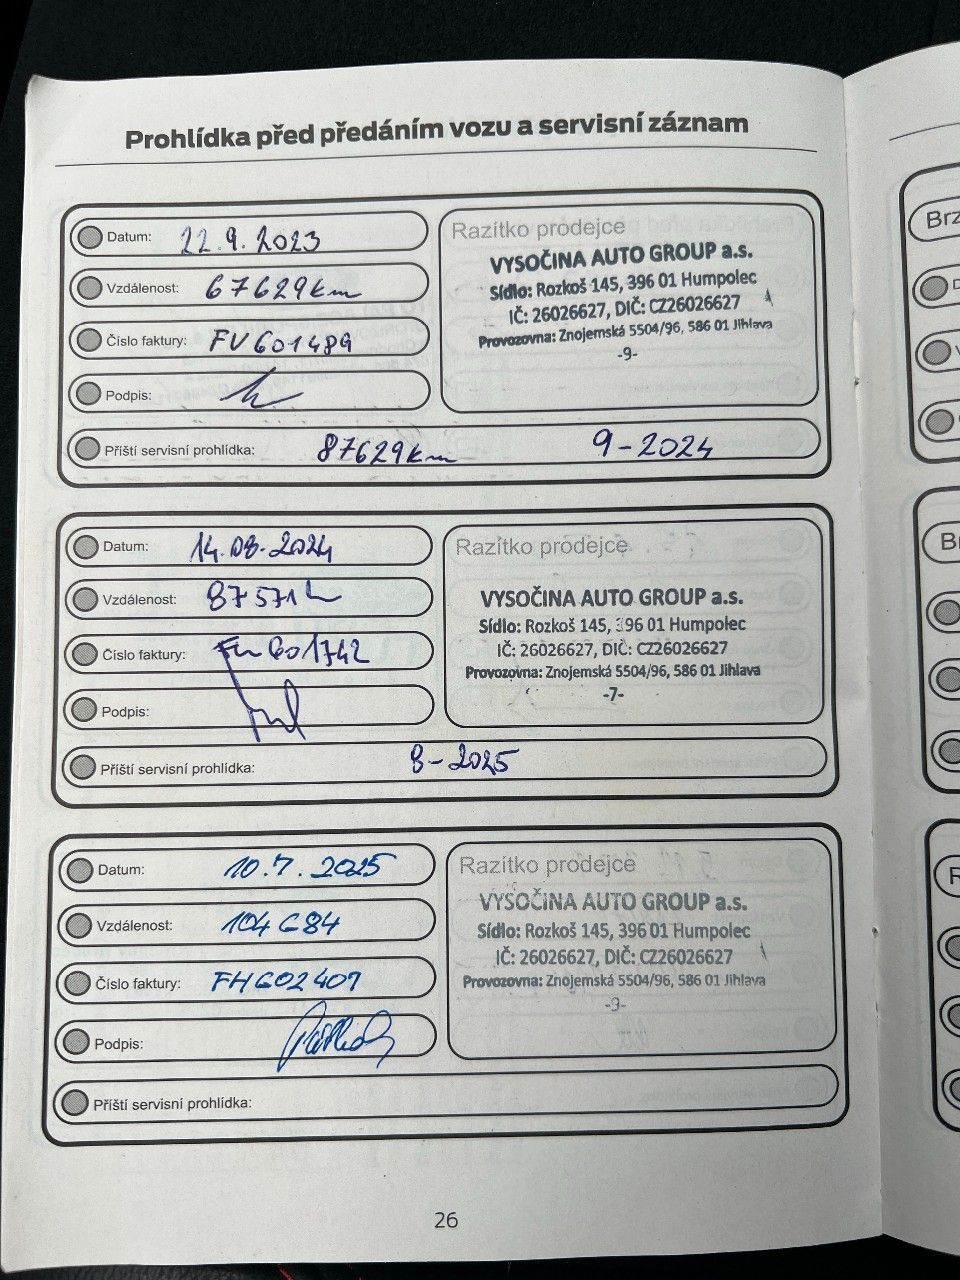 Prohlídka před předáním vozu a servisní záznam
Datum: 22.9.2023
Vzdálenost: 67629km
Číslo faktury: FV601489
Podpis:
Příští servisní prohlídka: 87629km 9-2024
Razítko prodejce
VYSOČINA AUTO GROUP a.s.
Sídlo: Rozkoš 145, 396 01 Humpolec
IČ: 26026627, DIČ: CZ26026627
Provozovna: Znojemská 5504/96, 586 01 Jihlava
-9-
Datum: 14.08.2024
Vzdálenost: 87571
Číslo faktury: 601742
Podpis:
Příští servisní prohlídka: 8-2025
Razítko prodejce
VYSOČINA AUTO GROUP a.s.
Sídlo: Rozkoš 145, 396 01 Humpolec
IČ: 26026627, DIČ: CZ26026627
Provozovna: Znojemská 5504/96, 586 01 Jihlava
-7-
Datum: 10.7.2025
Vzdálenost: 104684
Číslo faktury: FH602407
Podpis:
Příští servisní prohlídka:
Razítko prodejce
VYSOČINA AUTO GROUP a.s.
Sídlo: Rozkoš 145, 396 01 Humpolec
IČ: 26026627, DIČ: CZ26026627
Provozovna: Znojemská 5504/96, 586 01 Jihlava
26
Brz